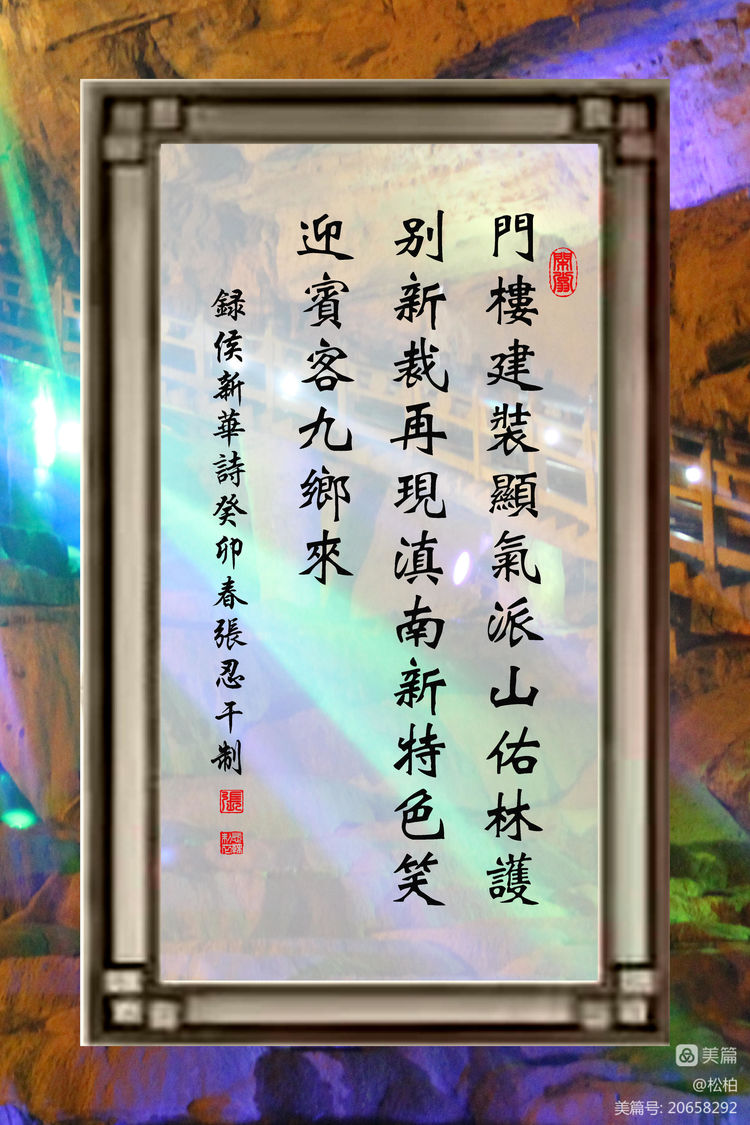 門樓建裝顯氣派山佑林護
别新裁再現滇南新特色笑
迎賓客九鄉來
録侯新華詩癸卯春張忍干制
張
美篇
@松柏
美篇号: 20658292